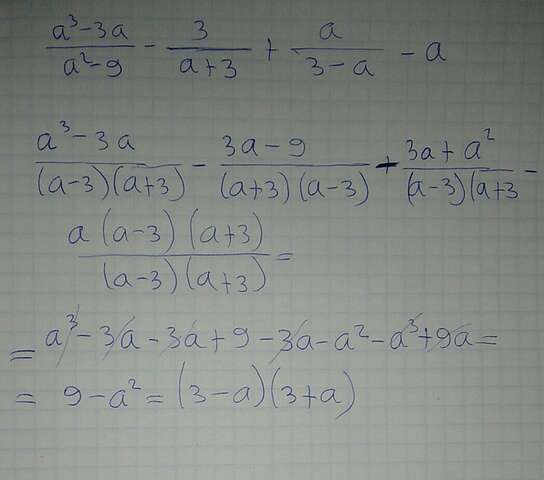 (a³-3a)/(a²-9) - 3/(a+3) + a/(3-a) - a
(a³-3a)/((a-3)(a+3)) - (3a-9)/((a+3)(a-3)) - (3a+a²)/((a-3)(a+3 -
(a(a-3)(a+3))/((a-3)(a+3)) =
= a³-3a-3a+9-3a-a²-a³+9a=
= 9-a²=(3-a)(3+a)